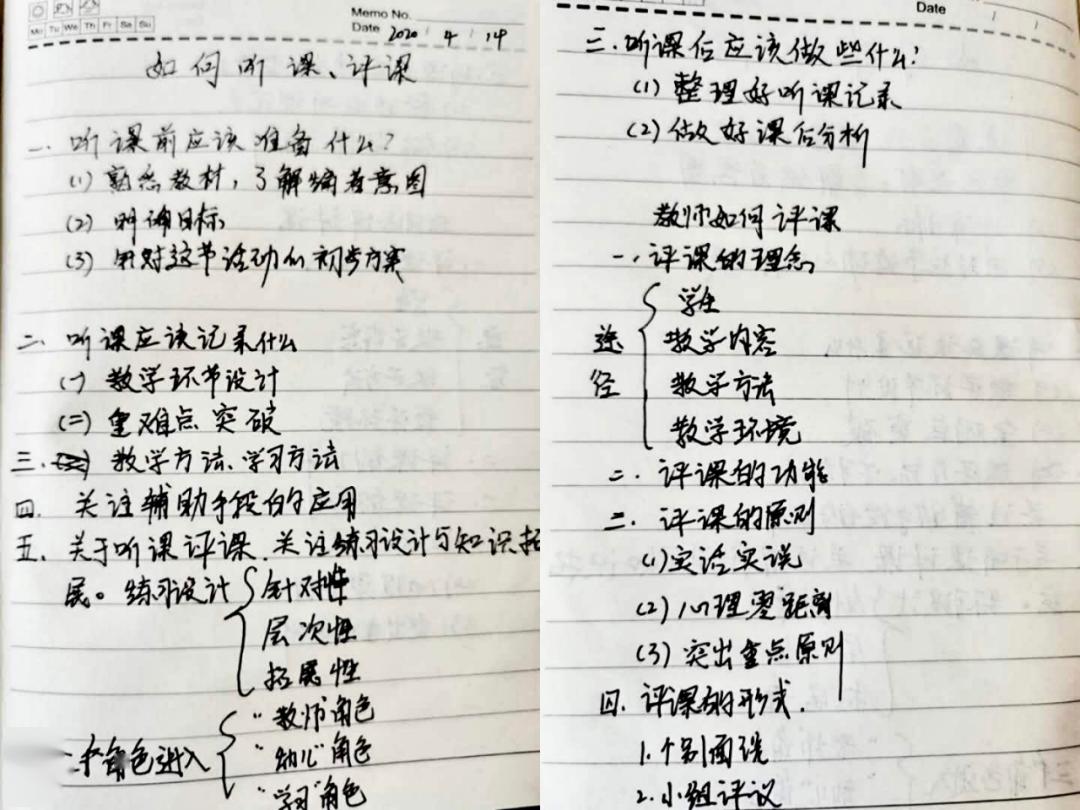 Memo No.
Mo Tu We Th Fr Sa Su
Date 2020 / 4 / 14
如何听课、评课
一、听课前应该准备什么？
(1) 熟悉教材，了解编者意图
(2) 明确目标
(3) 针对这节活动的初步方案
二、听课应该记录什么
(一) 教学环节设计
(二) 重难点突破
三. 教学方法、学习方法
四. 关注辅助手段的应用
五. 关于听课评课、关注练习设计与知识拓
展。练习设计 针对性
层次性
拓展性
"教师"角色
三个角色进入 "幼儿"角色
"学习"角色
Date
三.听课后应该做些什么？
(1) 整理好听课记录
(2) 做好课后分析
教师如何评课
一、评课的理念
学生
途 教学内容
径 教学方法
教学环境
二、评课的功能
三、评课的原则
(1) 实话实说
(2) 心理零距离
(3) 突出重点原则
四、评课的形式.
1.个别面谈
2.小组评议